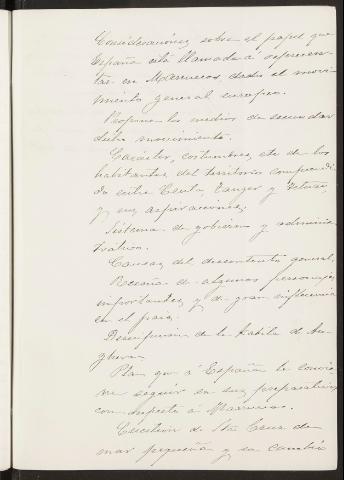 Consideraciones sobre el papel que
España está llamada á represen-
tar en Marruecos dado el movi-
miento general europeo.
Propone los medios de secundar
dicho movimiento.
Carácter, costumbres, etc de los
habitantes del territorio comprendi-
do entre Ceuta, Tanger y Tetuan,
y sus aspiraciones.
Sistema de gobierno y adminis-
trativo.
Causas del descontento general,
Reseña de algunos personajes
importantes y de gran influencia
en el pais.
Descripcion de la Kabila de An-
ghera.
Plan que á España le convie-
ne seguir en sus preparativos
con respecto á Marruecos.
Cuestion de Sta Cruz de
mar pequeña y su cambio